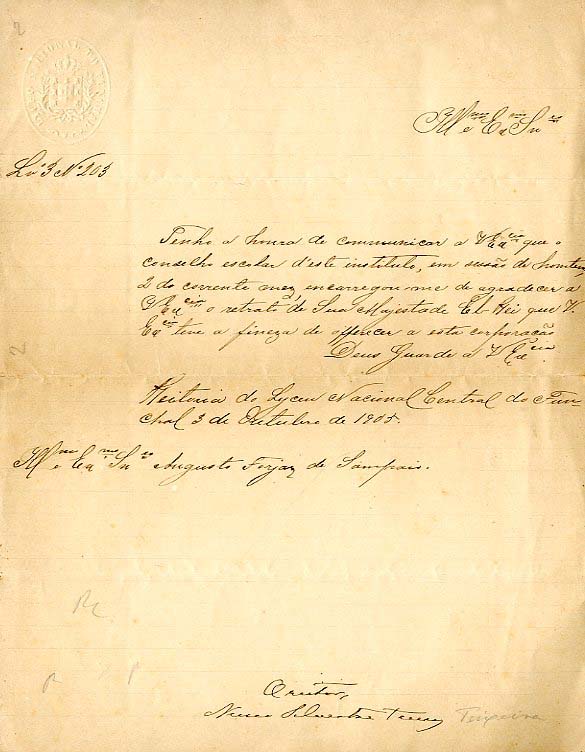 Ill.mo e Ex.mo Sn.r
Lv.o 3 N.o 203
Tenho a honra de communicar a V. Ex.cia que o
conselho escolar d'este instituto, em sessão de hontem
2 do corrente mez, encarregou-me de agradecer a
V. Ex.cia o retrato de Sua Majestade El-Rei que V.
Ex.cia teve a fineza de offerecer a esta corporação
Deus Guarde a V. Ex.cia
Reitoria do Lyceu Nacional Central do Fun-
chal 3 de Outubro de 1905.
Ill.mo e Ex.mo Sn.r Augusto Forjaz de Sampaio.
O reitor,
Nuno Silvestre Teixeira